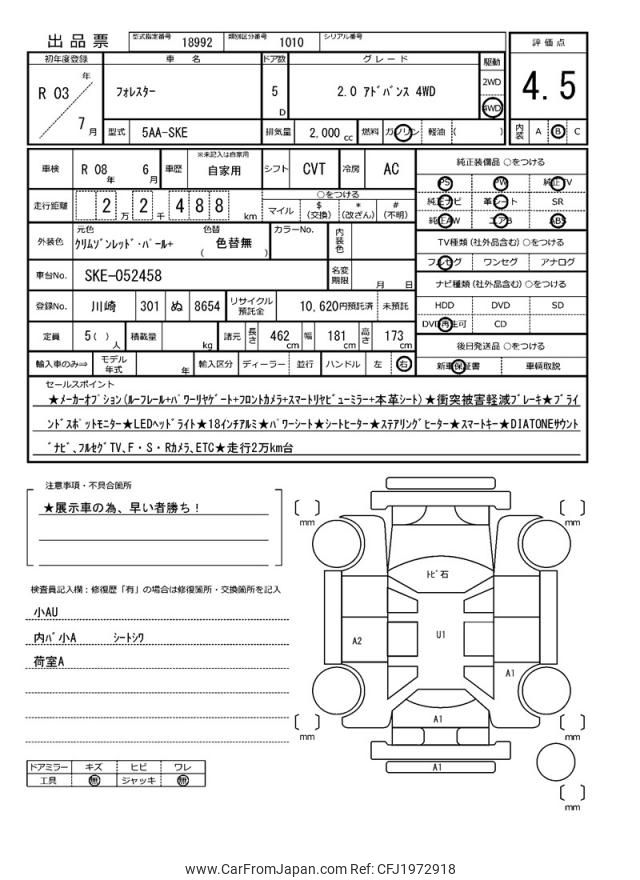 出品票 型式指定番号 18992 類別区分番号 1010 シリアル番号
初年度登録 車名 ドア数 グレード 駆動 評価点
R 03 年 フォレスター 5 D 2.0 アドバンス 4WD 2WD 4WD 4.5
7 月 型式 5AA-SKE 排気量 2,000 cc 燃料 ガソリン 軽油 ( ) 内装 A B C
車検 R 08 年 6 月 車歴 ※未記入は自家用 自家用 シフト CVT 冷房 AC
純正装備品 ○をつける
PS PW 純正TV
純正ナビ 革シート SR
純正AW エアB ABS
走行距離 2 万 2 千 4 8 8 km ○をつける マイル $ (交換) * (改ざん) # (不明)
TV種類 (社外品含む) ○をつける
フルセグ ワンセグ アナログ
外装色 元色 クリムゾンレッド・パール+ 色替 ( 色替無 ) カラーNo. 内装色
ナビ種類 (社外品含む) ○をつける
HDD DVD SD
DVD再生可 CD
車台No. SKE-052458 名変期限 月 日
登録No. 川崎 301 ぬ 8654 リサイクル預託金 10,620円預託済 未預託
後日発送品 ○をつける
新車保証書 車輌取説
定員 5( ) 人 積載量 kg 諸元 長さ 462 cm 幅 181 cm 高さ 173 cm
輸入車のみ⇒ モデル年式 年 輸入区分 ディーラー 並行 ハンドル 左 右
セールスポイント
★メーカーオプション(ルーフレール+パワーリヤゲート+フロントカメラ+スマートリヤビューミラー+本革シート)★衝突被害軽減ブレーキ★ブライ
ンドスポットモニター★LEDヘッドライト★18インチアルミ★パワーシート★シートヒーター★ステアリングヒーター★スマートキー★DIATONEサウント
゛ナビ、フルセグTV、F・S・Rカメラ、ETC★走行2万km台
注意事項・不具合箇所
★展示車の為、早い者勝ち!
検査員記入欄:修復歴「有」の場合は修復箇所・交換箇所を記入
小AU
内バ小A シートシワ
荷室A
mm
mm
トビ石
A2
U1
A1
A1
mm
mm
A1
mm
ドアミラー キズ ヒビ ワレ
工具 無 ジャッキ 無
www.CarFromJapan.com Ref: CFJ1972918